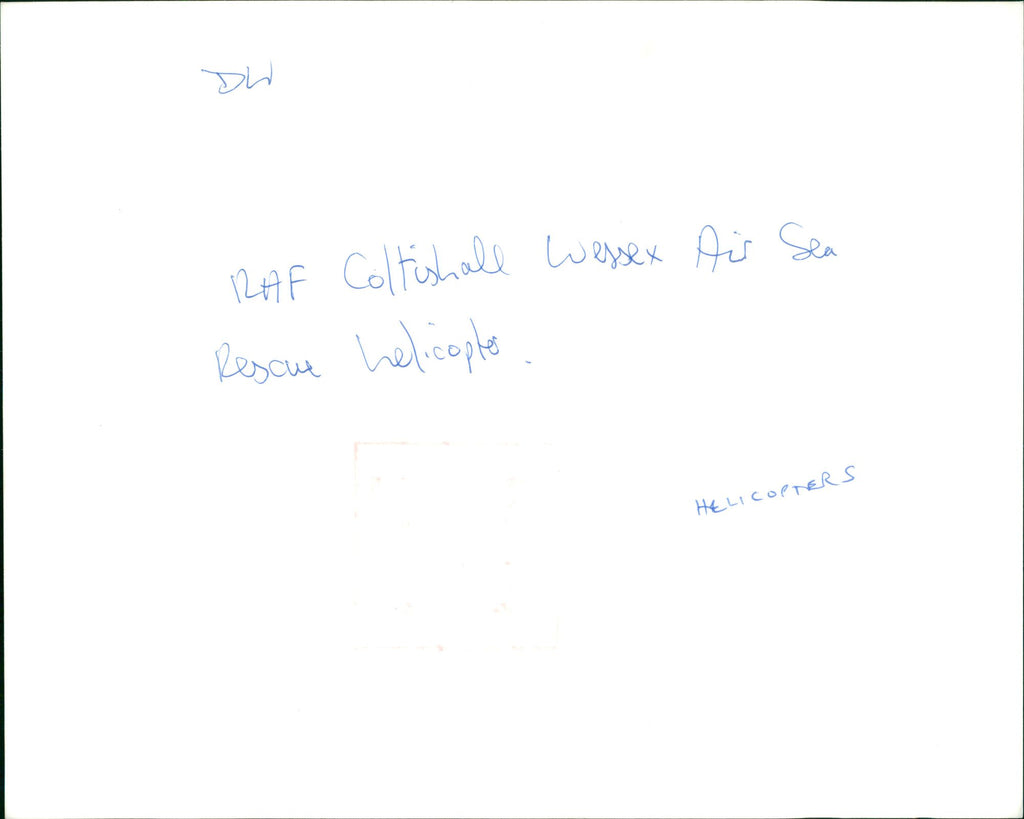 DW
RAF Coltishall Wessex Air Sea
Rescue helicopter.
HELICOPTERS